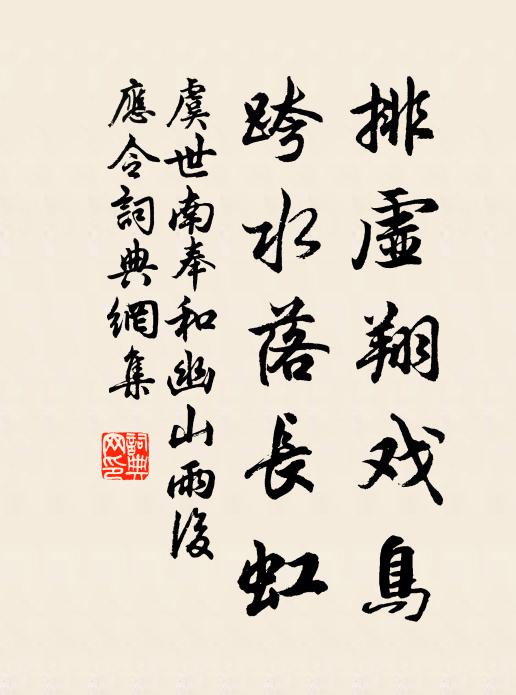 排虚翔戏鳥
跨水落長虹
虞世南奉和幽山雨後
應令詞典網集
詞典網印